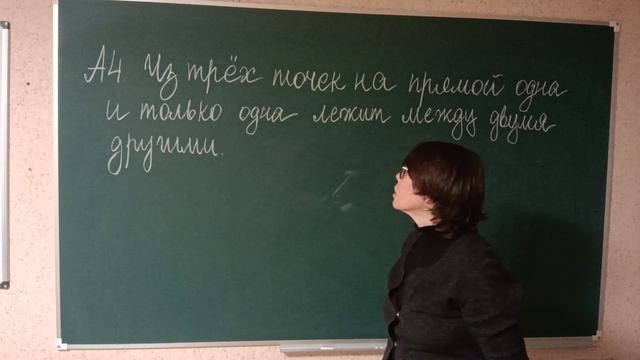 А4 Из трёх точек на прямой одна
и только одна лежит между двумя
другими.